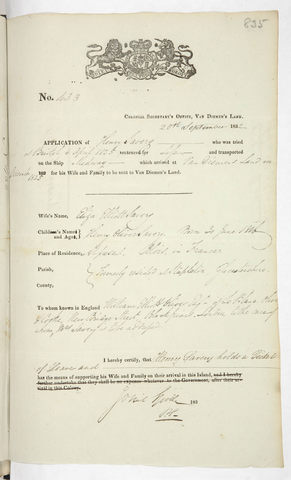 835
No. 463
COLONIAL SECRETARY'S OFFICE, VAN DIEMEN'S LAND.
20th September 1832
APPLICATION of Henry Savery who was tried
at Bristol 4 April 1825 sentenced for Life and transported
on the Ship Medway which arrived at Van Diemens Land in
182 for his Wife and Family to be sent to Van Diemen's Land.
Wife's Name, Eliza Elliott Savery
Children's Names and Ages, Henry Oliver Savery Born 30 June 1816
Place of Residence, in France
Parish, formerly resided at Stapleton Gloucestershire
County,
To whom known in England William Elliott Esqr of
New Bridge Street Blackfriars London to the care of
whom, Mrs Savery is to be addressed
I hereby certify, that Henry Savery holds a Ticket
of Leave and
has the means of supporting his Wife and Family on their arrival in this Island, and I hereby
further undertake that they shall be no expense whatever to the Government, after their ar-
rival in this Colony.
183